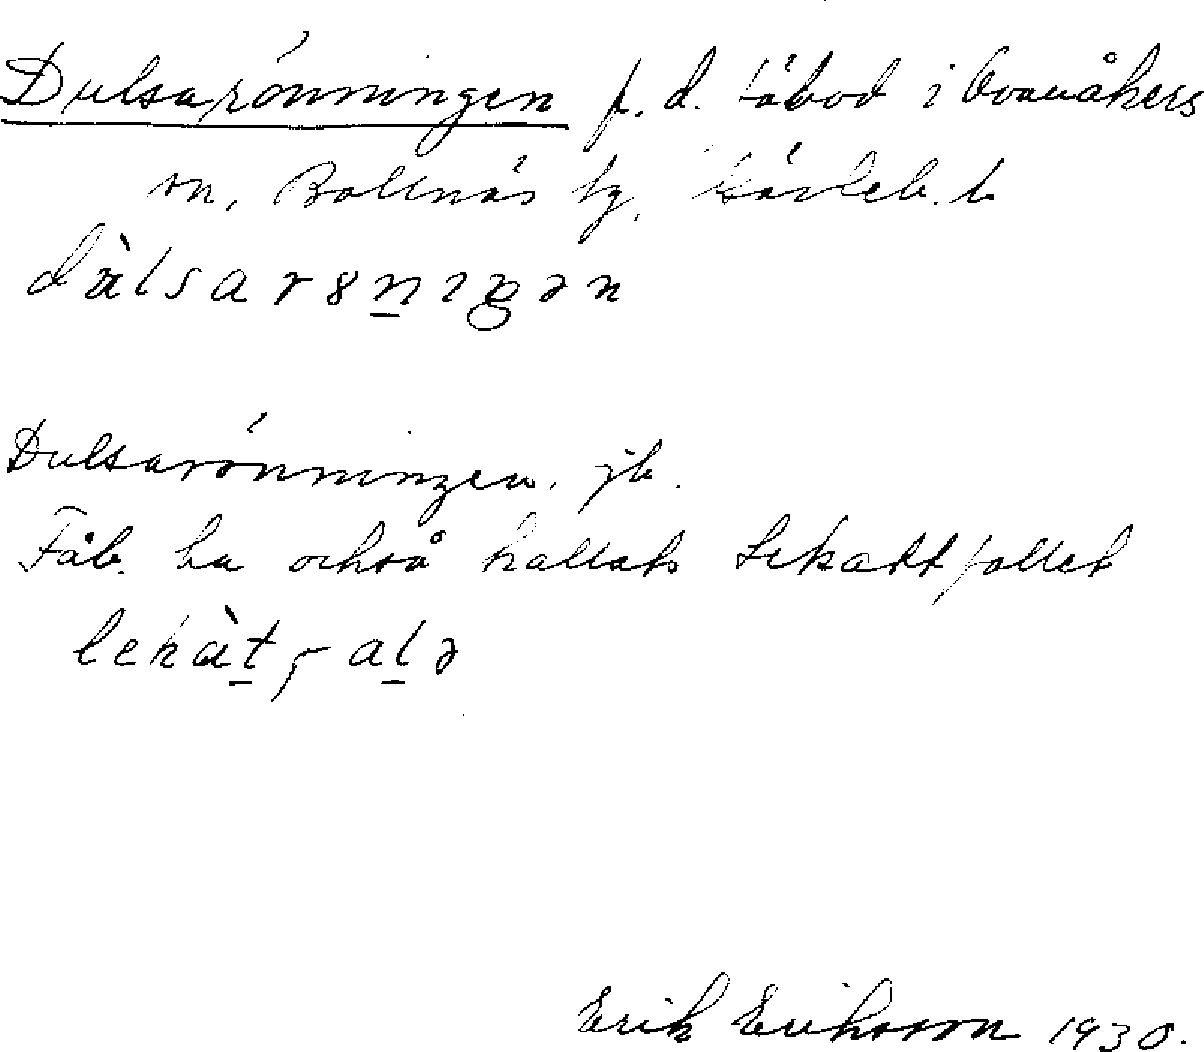 Dulsarönningen f. d. fäbod i Ovanåkers
sn, Bollnäs tg, Gävleb. l.
dùlsarönıŋən
Dulsarönningen. jb.
Fäb. ha också kallats Lekattfallet
lekàt, -alə
Erik Eriksson 1930.